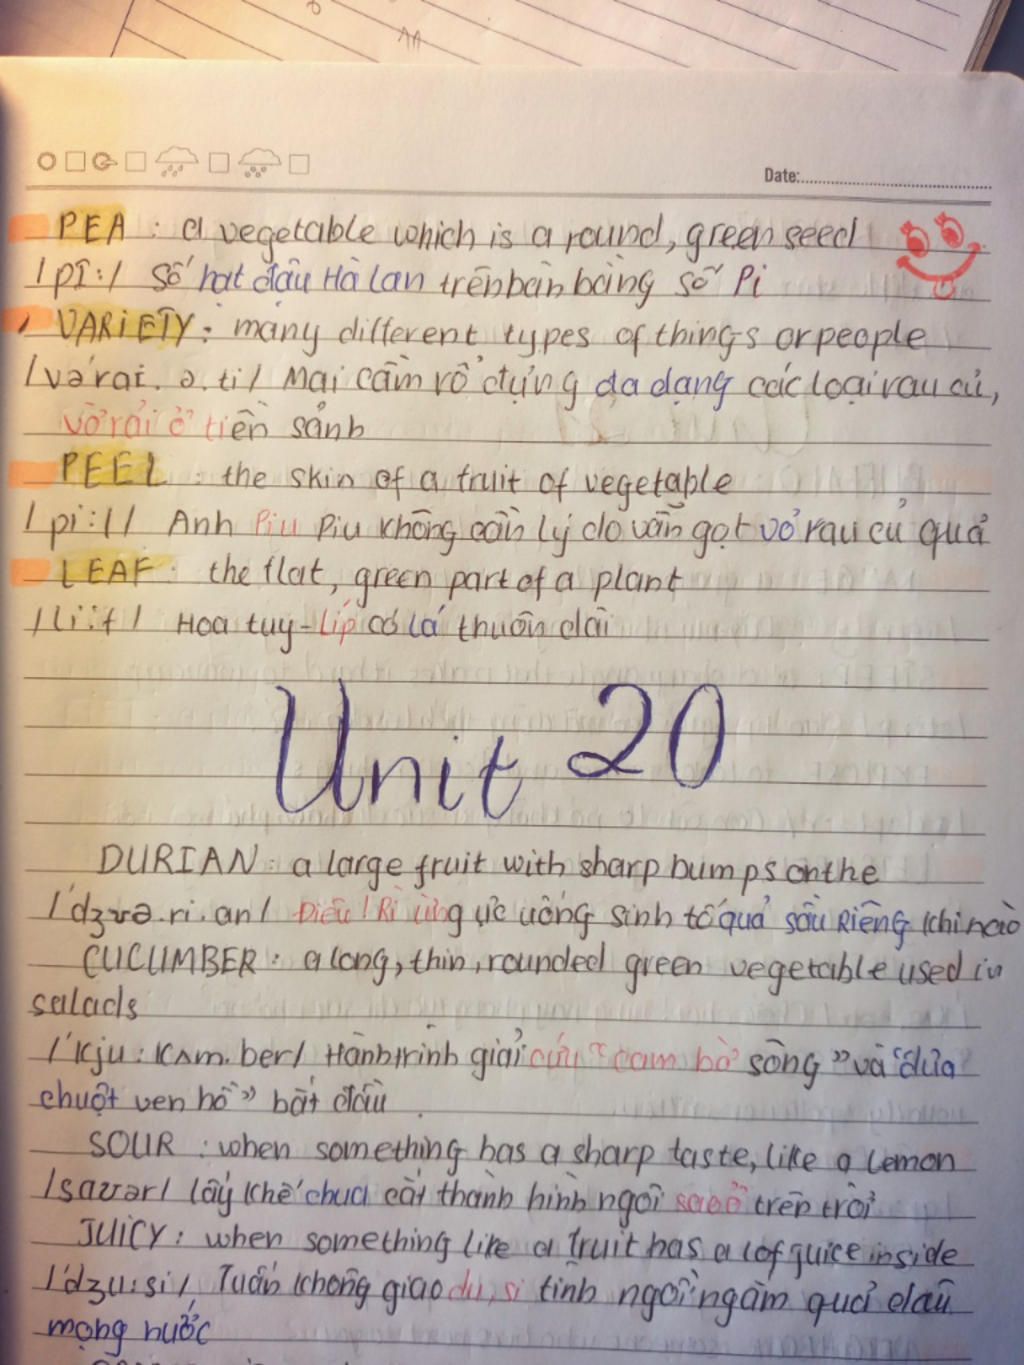 Date:
PEA : a vegetable which is a round, green seed
/pi:/ Số hạt đậu Hà Lan trên bàn bằng số Pi
VARIETY: many different types of things or people
/vəˈraɪ.ə.ti/ Mai cầm rổ đựng đa dạng các loại rau củ,
vờ rải ở tiền sảnh
PEEL : the skin of a fruit of vegetable
/pi:l/ Anh Piu Piu không cần lý do vẫn gọt vỏ rau củ quả
LEAF : the flat, green part of a plant
/li:f/ Hoa tuy-líp có lá thuôn dài
Unit 20
DURIAN: a large fruit with sharp bumps on the
/ˈdʒʊə.ri.an/ Điếu! Rì ừng ực uống sinh tố quả sầu Riêng khi nào
CUCUMBER: a long, thin, rounded green vegetable used in
salads
/ˈkju:kʌm.bər/ Hành trình giải cứu "cam bờ sông" và "dưa
chuột ven hồ" bắt đầu
SOUR : when something has a sharp taste, like a lemon
/saʊər/ lấy khế chua cắt thành hình ngôi sao ở trên trời
JUICY: when something like a fruit has a lof guice inside
/ˈdʒu:si/ Tuấn không giao du, si tình ngồi ngắm quả dâu
mọng nước